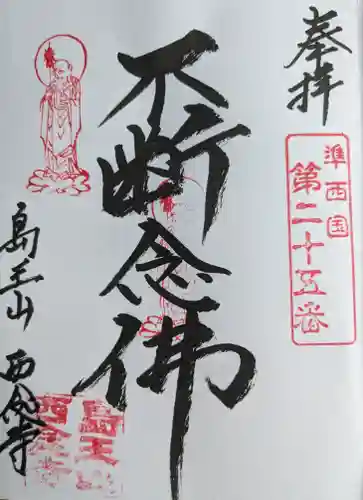 奉拝
準西国
第二十五番
不断念佛
島王山 西念寺
島王山
西念寺